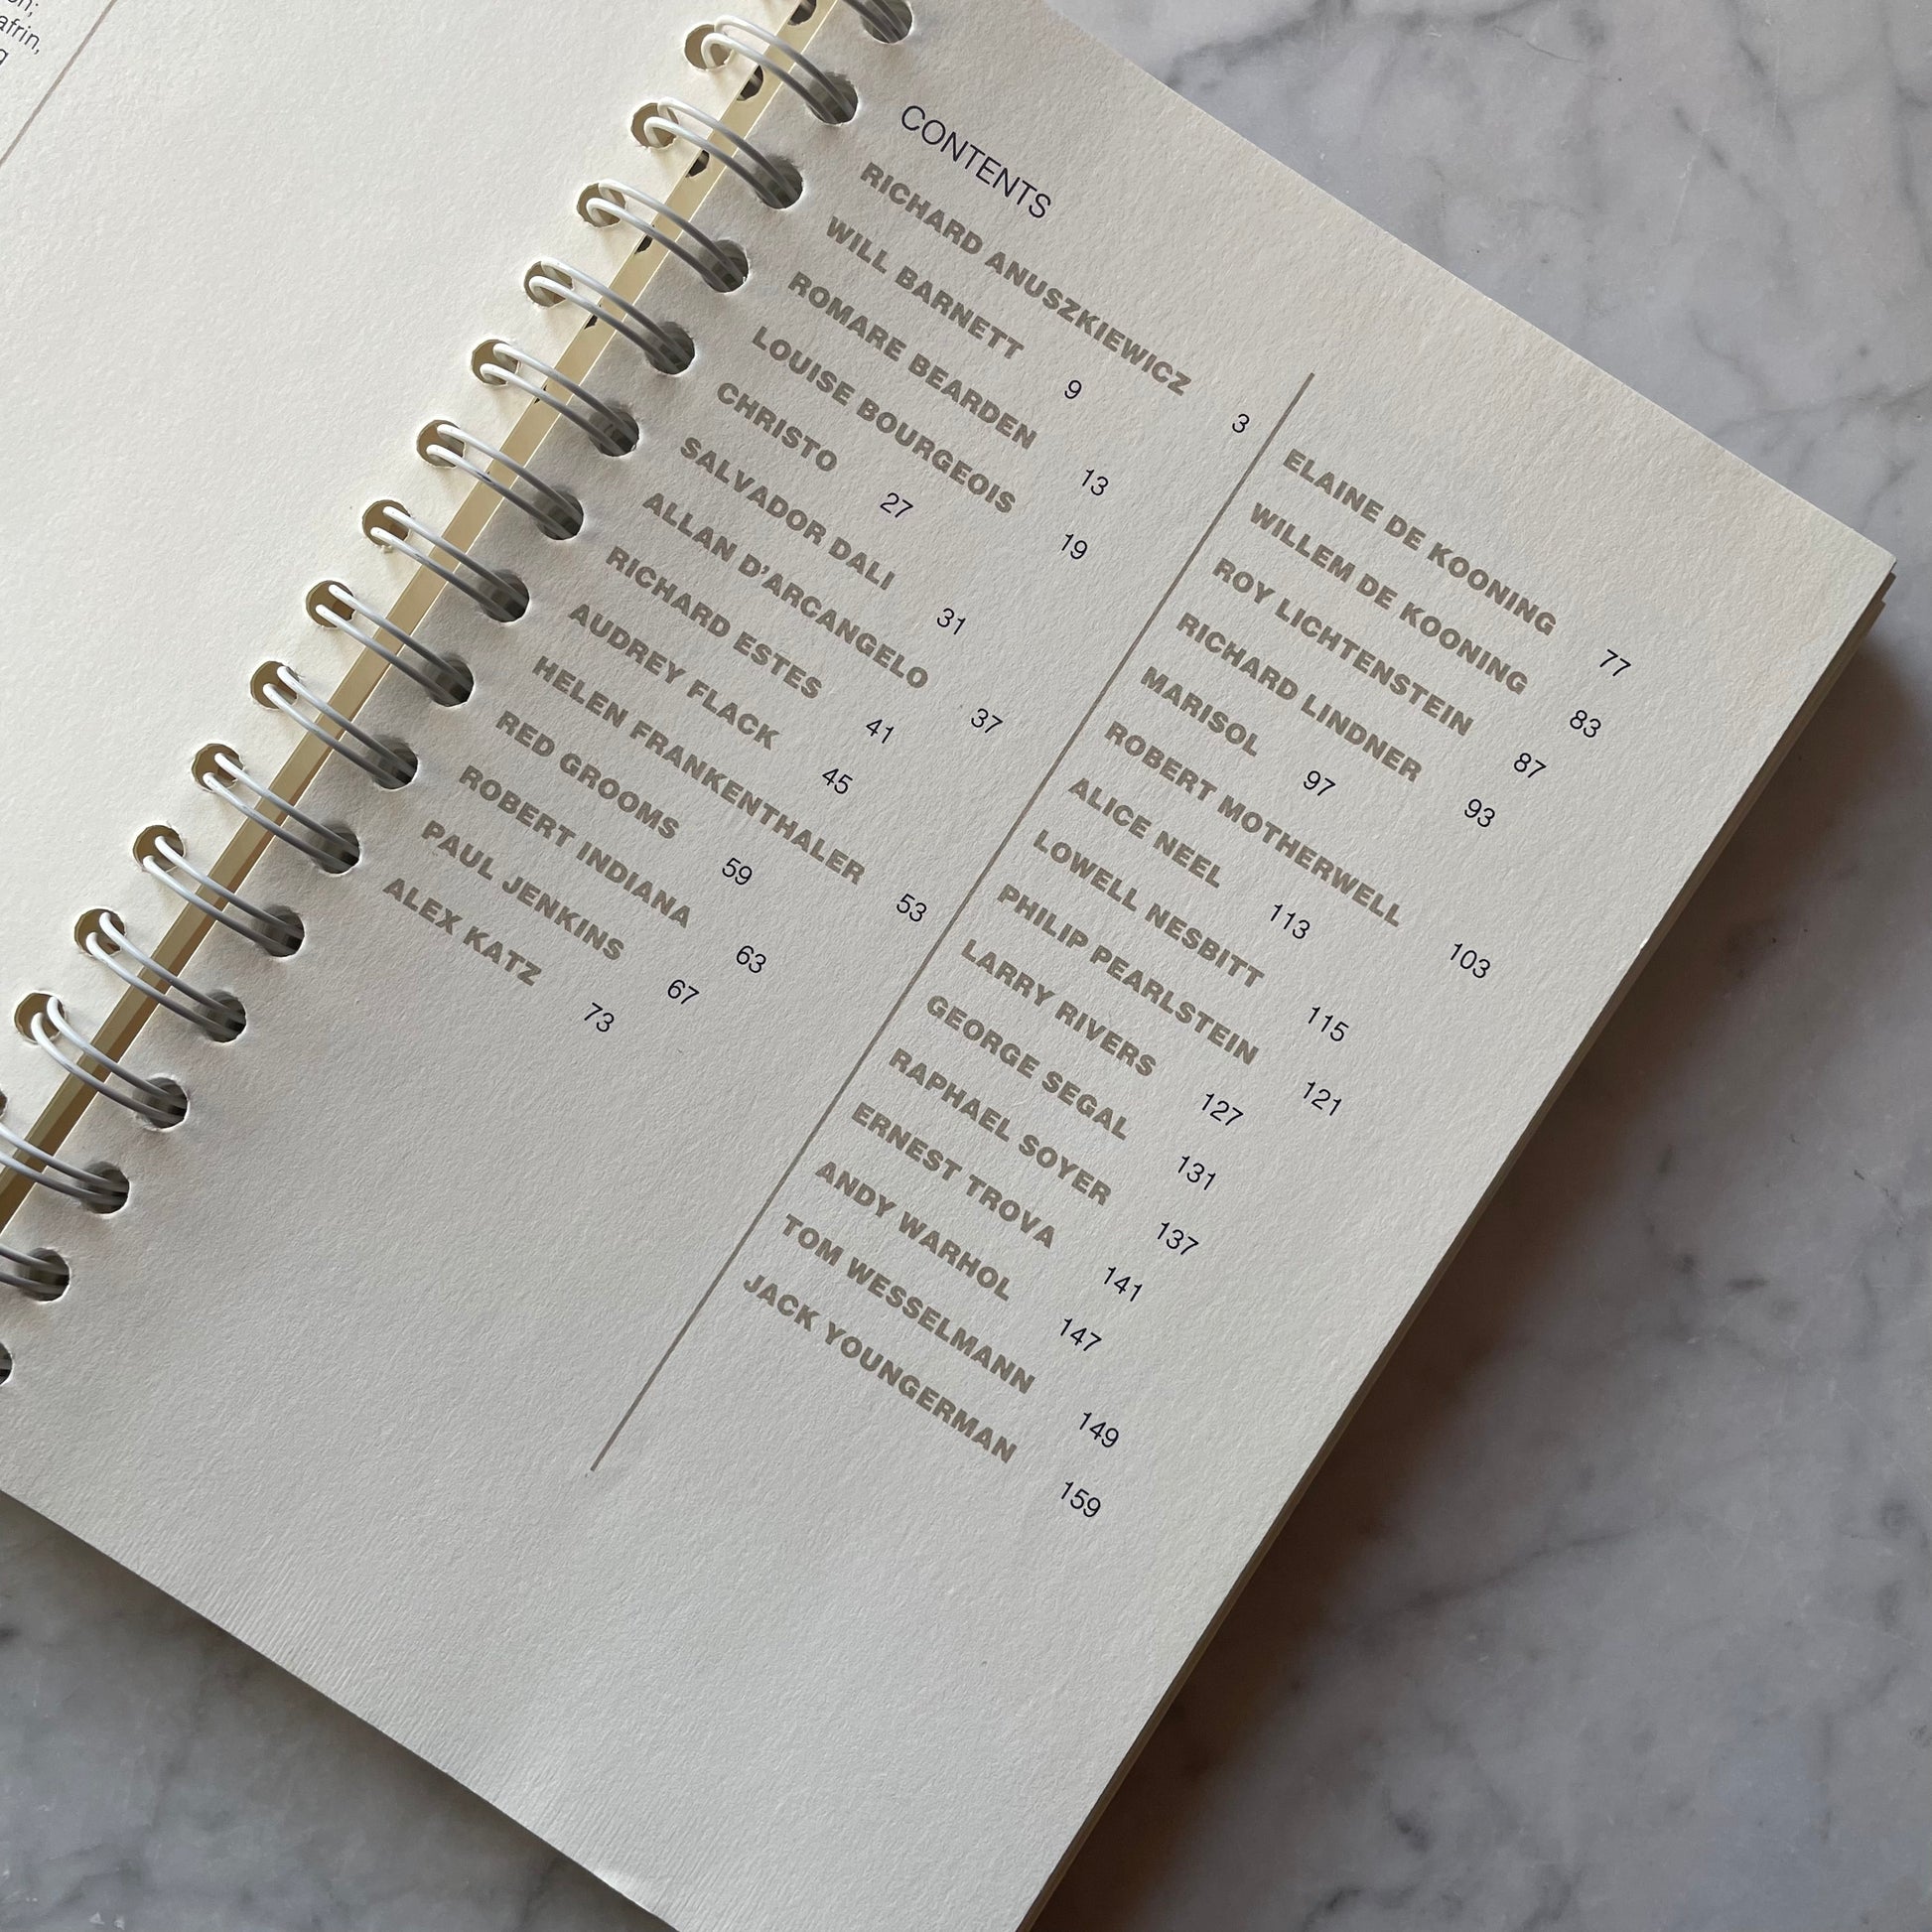 afrin,
CONTENTS
RICHARD ANUSZKIEWICZ 3
WILL BARNETT 9
ROMARE BEARDEN 13
LOUISE BOURGEOIS 19
CHRISTO 27
SALVADOR DALI 31
ALLAN D'ARCANGELO 37
RICHARD ESTES 41
AUDREY FLACK 45
HELEN FRANKENTHALER 53
RED GROOMS 59
ROBERT INDIANA 63
PAUL JENKINS 67
ALEX KATZ 73
ELAINE DE KOONING 77
WILLEM DE KOONING 83
ROY LICHTENSTEIN 87
RICHARD LINDNER 93
MARISOL 97
ROBERT MOTHERWELL 103
ALICE NEEL 113
LOWELL NESBITT 115
PHILIP PEARLSTEIN 121
LARRY RIVERS 127
GEORGE SEGAL 131
RAPHAEL SOYER 137
ERNEST TROVA 141
ANDY WARHOL 147
TOM WESSELMANN 149
JACK YOUNGERMAN 159